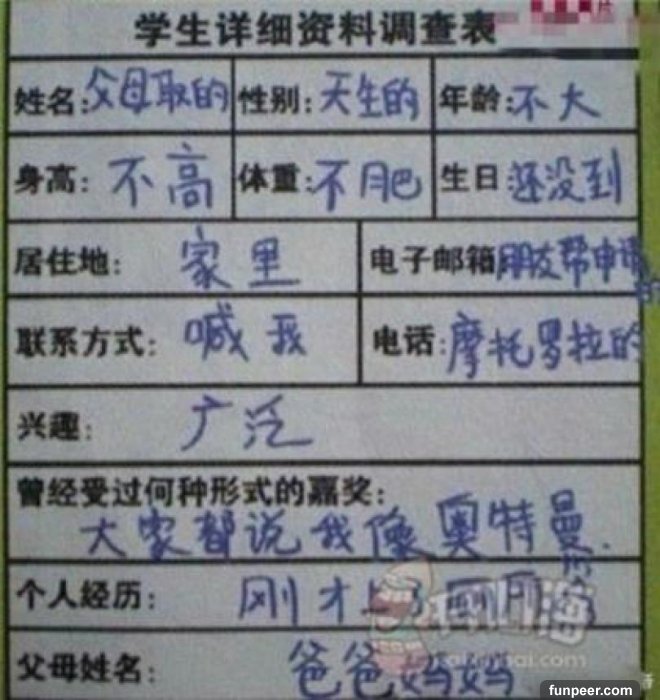 学生详细资料调查表 片
姓名:父母取的 性别:天生的 年龄:不大
身高: 不高 体重:不肥 生日:还没到
居住地: 家里 电子邮箱朋友帮申请
的
联系方式: 喊我 电话:摩托罗拉的
兴趣: 广泛
曾经受过何种形式的嘉奖:
大家都说我像奥特曼.
个人经历: 刚才上了
父母姓名: 爸爸妈妈
funpeer.com